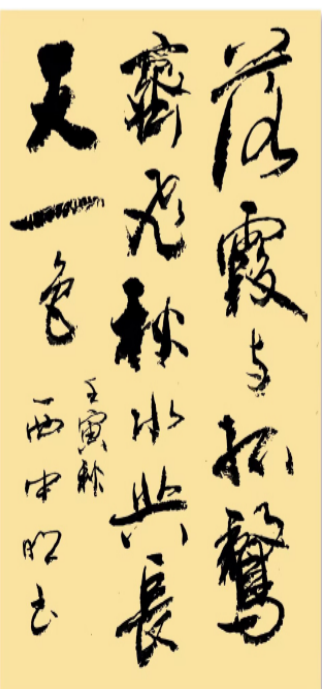 落霞与孤鶩
齊飛秋水與長
天一色
壬寅秋
西中明书